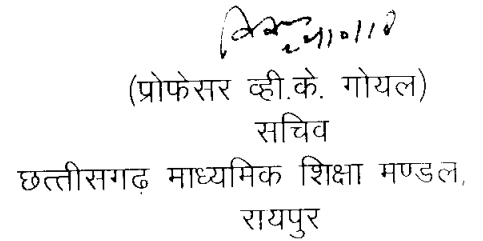 (प्रोफेसर व्ही.के. गोयल)
सचिव
छत्तीसगढ़ माध्यमिक शिक्षा मण्डल,
रायपुर